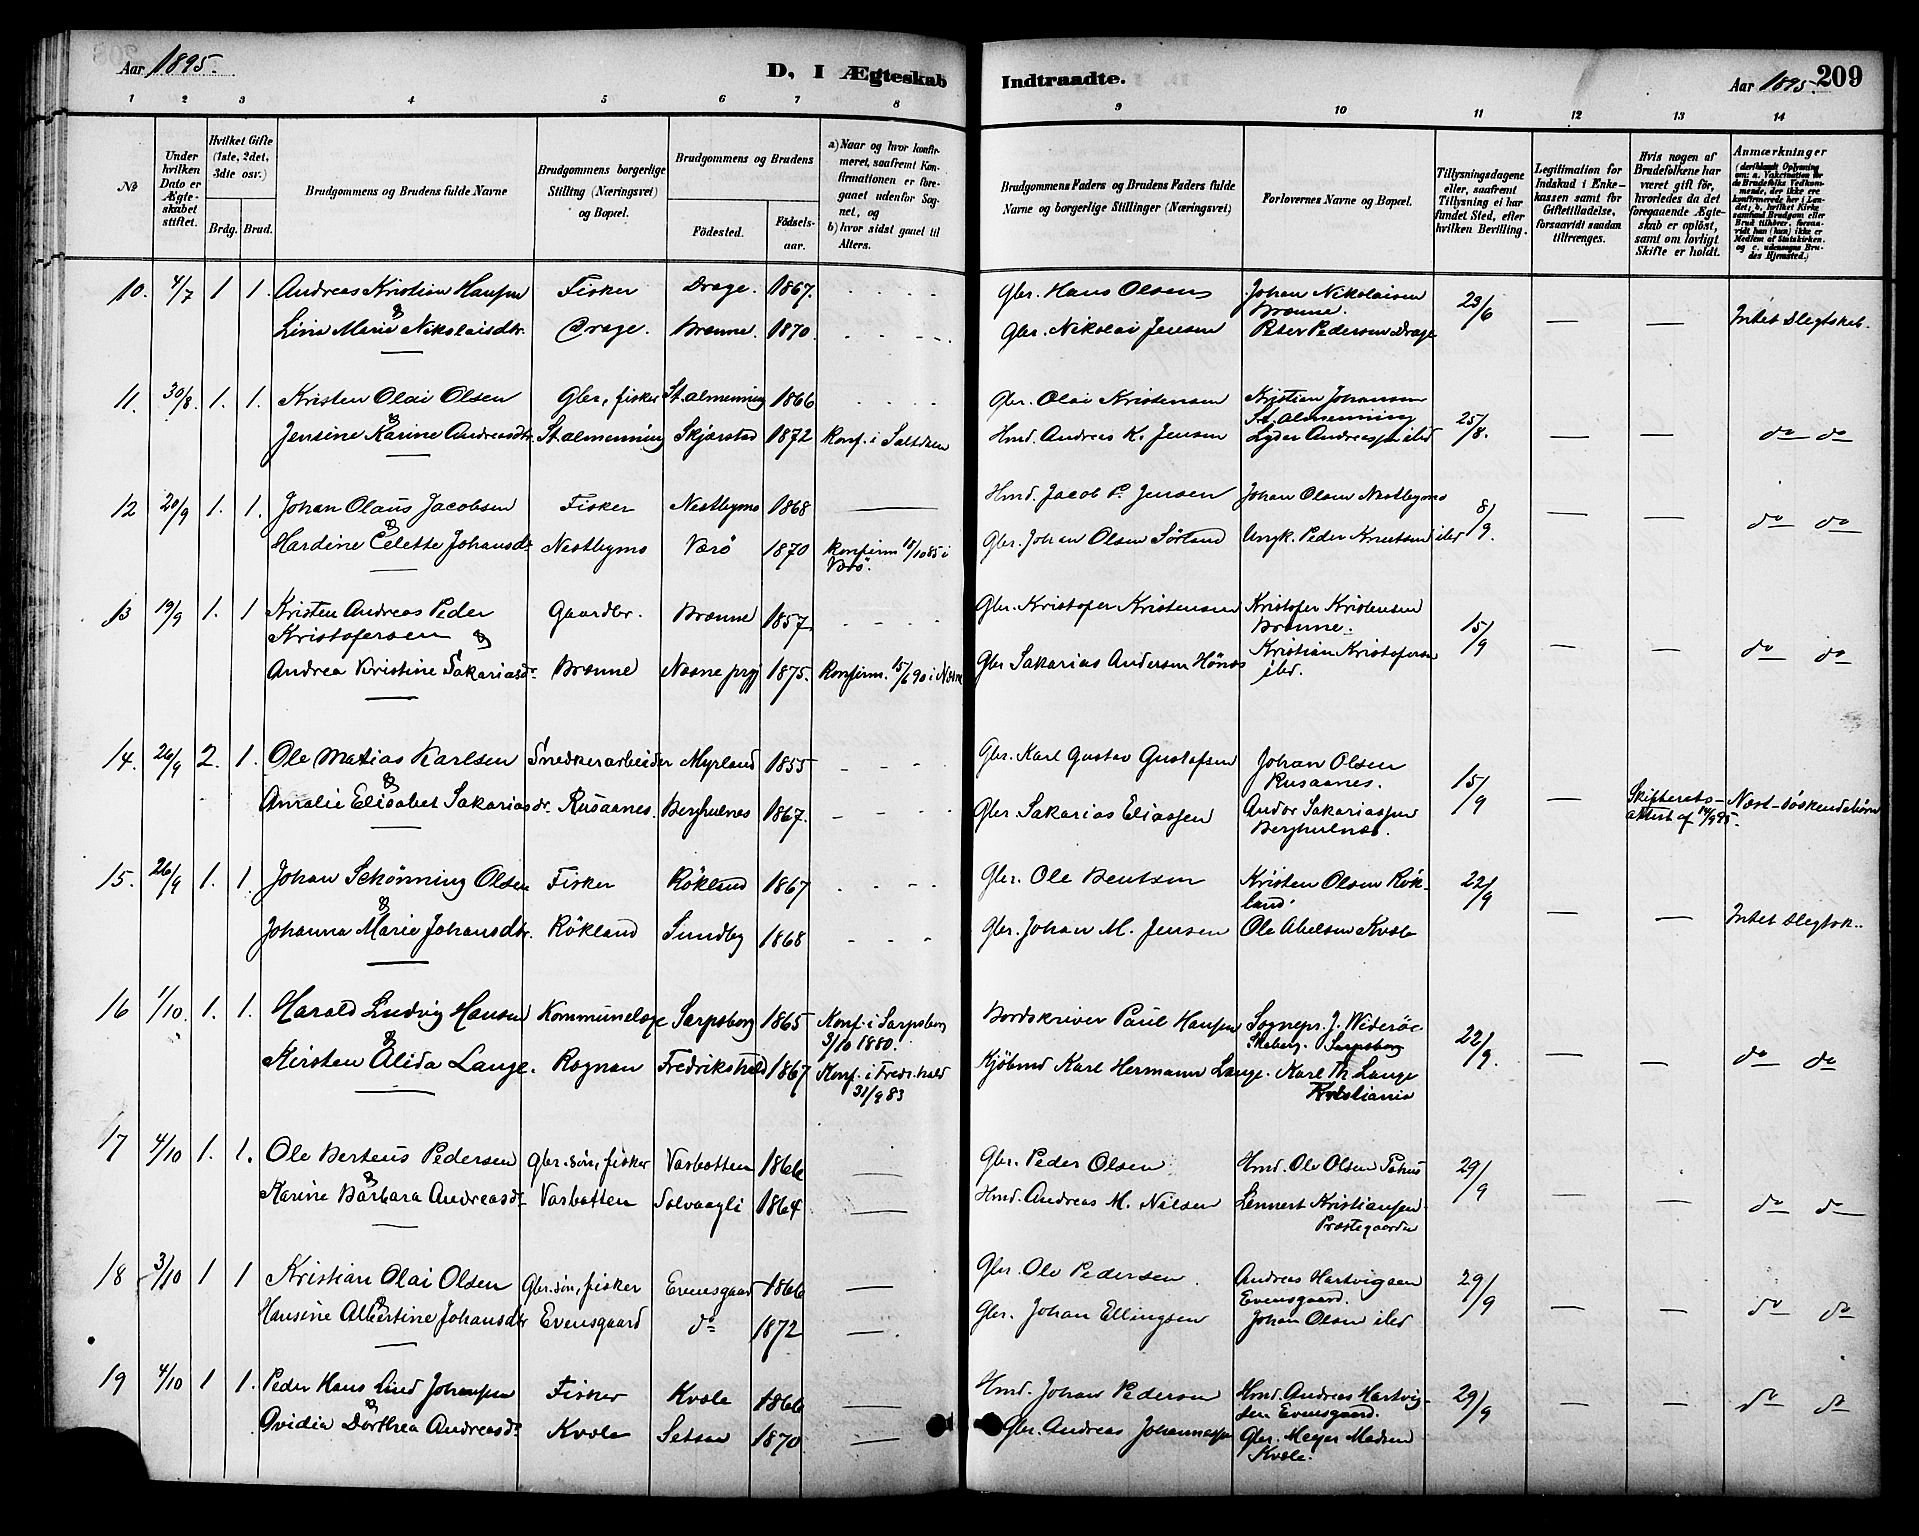 Aar 1895.
D, I Ægteskab
Indtraadte.
Aar 1895. 209
1 2 3 4 5 6 7 8 9 10 11 12 13 14
No
Under hvilken Dato er Ægteskabet stiftet.
Hvilket Gifte (1ste, 2det, 3die osv.)
Brdg. Brud.
Brudgommens og Brudens fulde Navne
Brudgommens borgerlige Stilling (Næringsvei) og Bopæl.
Brudgommens og Brudens
Fødested. Fødselsaar.
a) Naar og hvor konfirmeret, saafremt Konfirmationen er foregaaet udenfor Sognet, og
b) hvor sidst gaaet til Alters.
Brudgommens Faders og Brudens Faders fulde Navne og borgerlige Stillinger (Næringsvei)
Forlovernes Navne og Bopæl.
Tillysningsdagene eller, saafremt Tillysning ei har fundet Sted, efter hvilken Bevilling.
Legitimation for Indskud i Enkekassen samt for Giftetilladelse, forsaavidt saadan tiltrænges.
Hvis nogen af Brudefolkene har været gift før, hvorledes da det foregaaende Ægteskab er opløst, samt om lovligt Skifte er holdt.
Anmærkninger
(deriblandt Oplysning om: a. Vakcination for de Brudefolks Vedkommende, der ikke ere konfirmerede her i Landet; b. hvilket Kirkesamfund Brudgom eller Brud tilhører, forsaavidt han (hun) ikke er Medlem af Statskirken, og c. udensogns Brudes Hjemsted.)
10. 4/7 1 1. Andreas Kristian Hansen Fisker Drage. 1867. Gbr. Hans Olsen Johan Nikolaisen Brænne. 23/6 — — Intet Slegtskab.
& Lina Marie Nikolaisdtr. Drage. Brænne. 1870. Gbr. Nikolai Jensen Peter Pedersen Drage
11. 30/8. 1. 1. Kristen Olai Olsen Gbr, fisker St. almenning 1866 Gbr. Olai Kristensen Kristian Johansen St. Almenning 25/8. — — do do
& Jensine Karine Andreasdtr. St. almenning Skjærstad 1872 Konf. i Saltdalen Hmd. Andreas K. Jensen Lyder Andreassen ibd
12 20/9 1. 1. Johan Olaus Jacobsen Fisker Nestbymo 1868 — Hmd. Jacob P. Jensen Johan Olsen Nestbymo 8/9. — — do do
& Hardine Celette Johansdr Nestbymo Værø 1870 Konfirm 18/10 85 i Værø. Gbr. Johan Olsen Sørland Ungk. Peder Knutsen ibd
13 19/9 1. 1 Kristen Andreas Peder Kristofersen & Gaardbr. Brænne 1857. Gbr. Kristofer Kristensen Kristofer Kristensen Brænne. 15/9 — — do do
Andrea Kristine Sakariasdr. Brænne Nesne prgj 1875. Konfirm. 15/6 90 i Nesne Gbr Sakarias Andersen Hønes Kristian Kristofersen ibd.
14. 26/9 2. 1. Ole Matias Karlsen Snedkerarbeider Myrland 1855 Gbr. Karl Gustav Gustafsen Johan Olsen Rusaanes. 15/9 — Skifterets-attest af 14/9 95. Næst-søskendebørn
& Amalie Elisabet Sakariasdr. Rusaanes. Berghulnes 1867. Gbr Sakarias Eliassen Andor Sakariassen Berghulnes.
15. 26/9 1. 1. Johan Schønning Olsen Fisker Røkland 1867 Gbr. Ole Bentsen Kristen Olsen Røkland. 22/9 — — Intet Slegtsk..
& Johanna Marie Johansdtr. Røkland Sundby 1868 Gbr. Johan M. Jensen Ole Abelsen Kvæle
16 1/10. 1. 1. Harald Ludvig Hansen Kommunelæge Sarpsborg 1865 Konf. i Sarpsborg 3/10 1880. Bordskriver Paul Hansen Sognepr. J. Widerøe Skeberg. Sarpsborg 22/9. — — do do
& Kirsten Alida Lange. Rognan Fredrikshald 1867 Konf. i Freds.hald 31/9 83 Kjøbmd Karl Hermann Lange. Karl Th Lange Kristiania
17 4/10 1. 1. Ole Berteus Pedersen Gbr.søn, fisker Vasbotten 1866 — Gbr. Peder Olsen Hmd. Ole Olsen 29/9 — — do do
& Karine Barbara Andreasdr. Vasbotten Solvaagli 1864 — Hmd. Andreas M. Nilsen Lennert Kristiansen Præstegaarden
18 3/10 1 1 Kristian Olai Olsen Gbr.søn, fisker Evensgaard 1866 — Gbr. Ole Pedersen. Andreas Hartvigsen Evensgaard. 29/9 — — do do
& Hansine Albertine Johansdtr Evensgaard do 1872 — Gbr. Johan Ellingsen Johan Olsen ibd
19 4/10 1 1. Peder Hans Lind Johansen Fisker Kvæle 1866 — Hmd. Johan Pedersen Hmd. Andreas Hartvigsen Evensgaard. 29/9 — — do do
& Ovidia Dorthea Andreasdr. Kvæle Setsaa 1870 — Gbr. Andreas Johannessen Gbr. Meyer Madsen Kvæle.